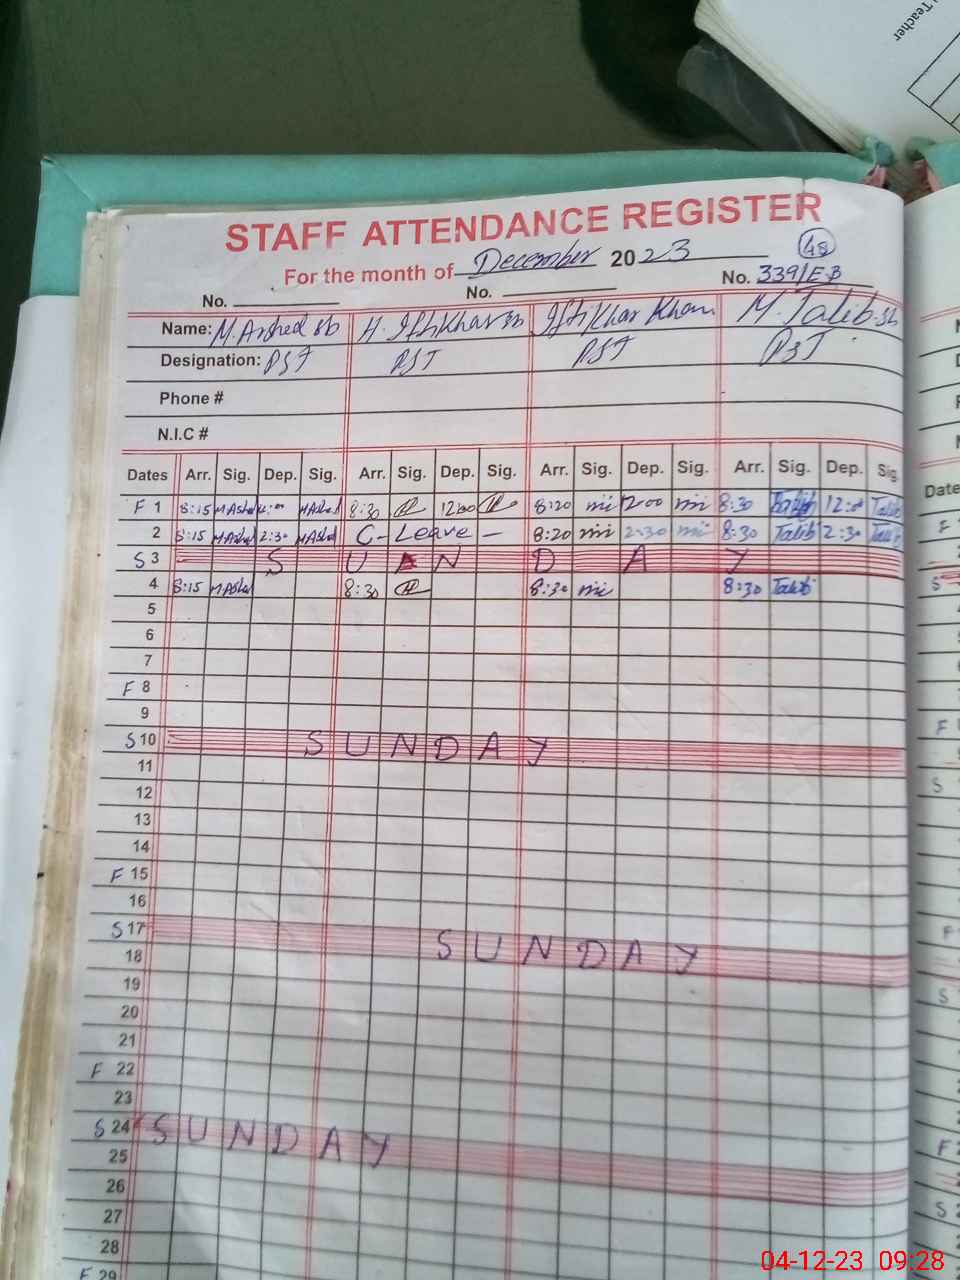 Teacher
STAFF ATTENDANCE REGISTER
48
For the month of December 2023
No. No. No. 339/EB
Name: M. Arshed sb H. Iftikhar sb Iftikhar Khan M. Talib sb
Designation: PST PST PST PST
Phone #
N.I.C #
Dates Arr. Sig. Dep. Sig. Arr. Sig. Dep. Sig. Arr. Sig. Dep. Sig. Arr. Sig. Dep. Sig.
F 1 8:15 MArshed 8:30 1200 8:20 12:00 8:30 Talib 12:00 Talib
2 8:15 MArshed 2:30 MArshed C-Leave - 8:20 2:30 8:30 Talib 2:30 Talib
S 3 S U A N D A Y
4 8:15 MArshed 8:30 8:30 8:30 Talib
5
6
7
F 8
9
S 10 S U N D A Y
11
12
13
14
F 15
16
S 17
18 S U N D A Y
19
20
21
F 22
23
S 24 S U N D A Y
25
26
27
28
F 29
Date
F
S
F
S
F
S
F
S
04-12-23 09:28